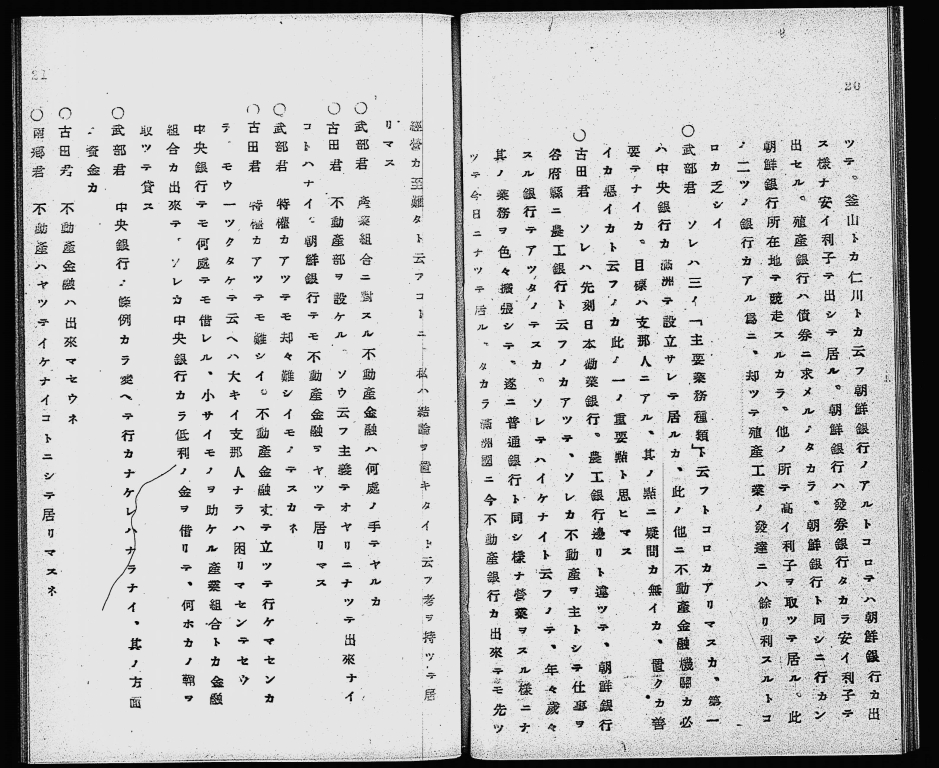 20
ツテ。釜山トカ仁川トカ云フ朝鮮銀行ノアルトコロテハ朝鮮銀行カ出
ス様ナ安イ利子テ出シテ居ル。朝鮮銀行ハ發券銀行タカラ安イ利子テ
出セル。殖產銀行ハ債券ニ求メルノタカラ。朝鮮銀行ト同シニ行カン
朝鮮銀行所在地テ競走スルカラ。他ノ所テ高イ利子ヲ取ツテ居ル。此
ノ二ツノ銀行カアル爲ニ、却ツテ殖產工業ノ發達ニハ餘リ利スルトコ
ロカ乏シイ
〇武部君 ソレハ三イ「主要業務種類」ト云フトコロカアリマスカ、第一
ハ中央銀行カ滿洲テ設立サレテ居ルカ、此ノ他ニ不動產金融機關カ必
要テナイカ。目標ハ支那人ニアル、其ノ點ニ疑問カ無イカ、置クカ善
イカ惡イカト云フノカ此ノ一ノ重要點ト思ヒマス
〇古田君 ソレハ先刻日本勸業銀行。農工銀行邊リト違ツテ、朝鮮銀行
各府縣ニ農工銀行ト云フノカアツテ、ソレカ不動產ヲ主トシテ仕事ヲ
スル銀行テアツタノテスカ。ソレテハイケナイト云フノテ、年々歲々
其ノ業務ヲ色々擴張シテ、遂ニ普通銀行ト同シ樣ナ營業ヲスル樣ニナ
ツテ今日ニナツテ居ル、タカラ滿洲國ニ今不動產銀行カ出來テモ先ツ
21
經營カ至難タト云フコトニ 私ハ結論ヲ置キタイト云フ考ヲ持ツテ居
リマス
〇武部君 產業組合ニ對スル不動產金融ハ何處ノ手テヤルカ
〇古田君 不動產部ヲ設ケル、ソウ云フ主義テオヤリニナツテ出來ナイ
コトハナイ、朝鮮銀行テモ不動產金融ヲヤツテ居リマス
〇武部君 特權カアツテモ却々難シイモノテスカネ
〇古田君 特權カアツテモ難シイ。不動產金融丈テ立ツテ行ケマセンカ
テ モウ一ツタケテ云ヘハ大キイ支那人ナラハ困リマセンテセウ
中央銀行テモ何處テモ借レル、小サイモノヲ助ケル產業組合トカ金融
組合カ出來テ、ソレカ中央銀行カラ低利ノ金ヲ借リテ、何ホカノ鞘ヲ
取ツテ貸ス
〇武部君 中央銀行ノ條例カラ變ヘテ行カナケレハナラナイ、其ノ方面
ノ資金カ
〇古田君 不動產金融ハ出來マセウネ
〇南鄕君 不動產ハヤツテイケナイコトニシテ居リマスネ